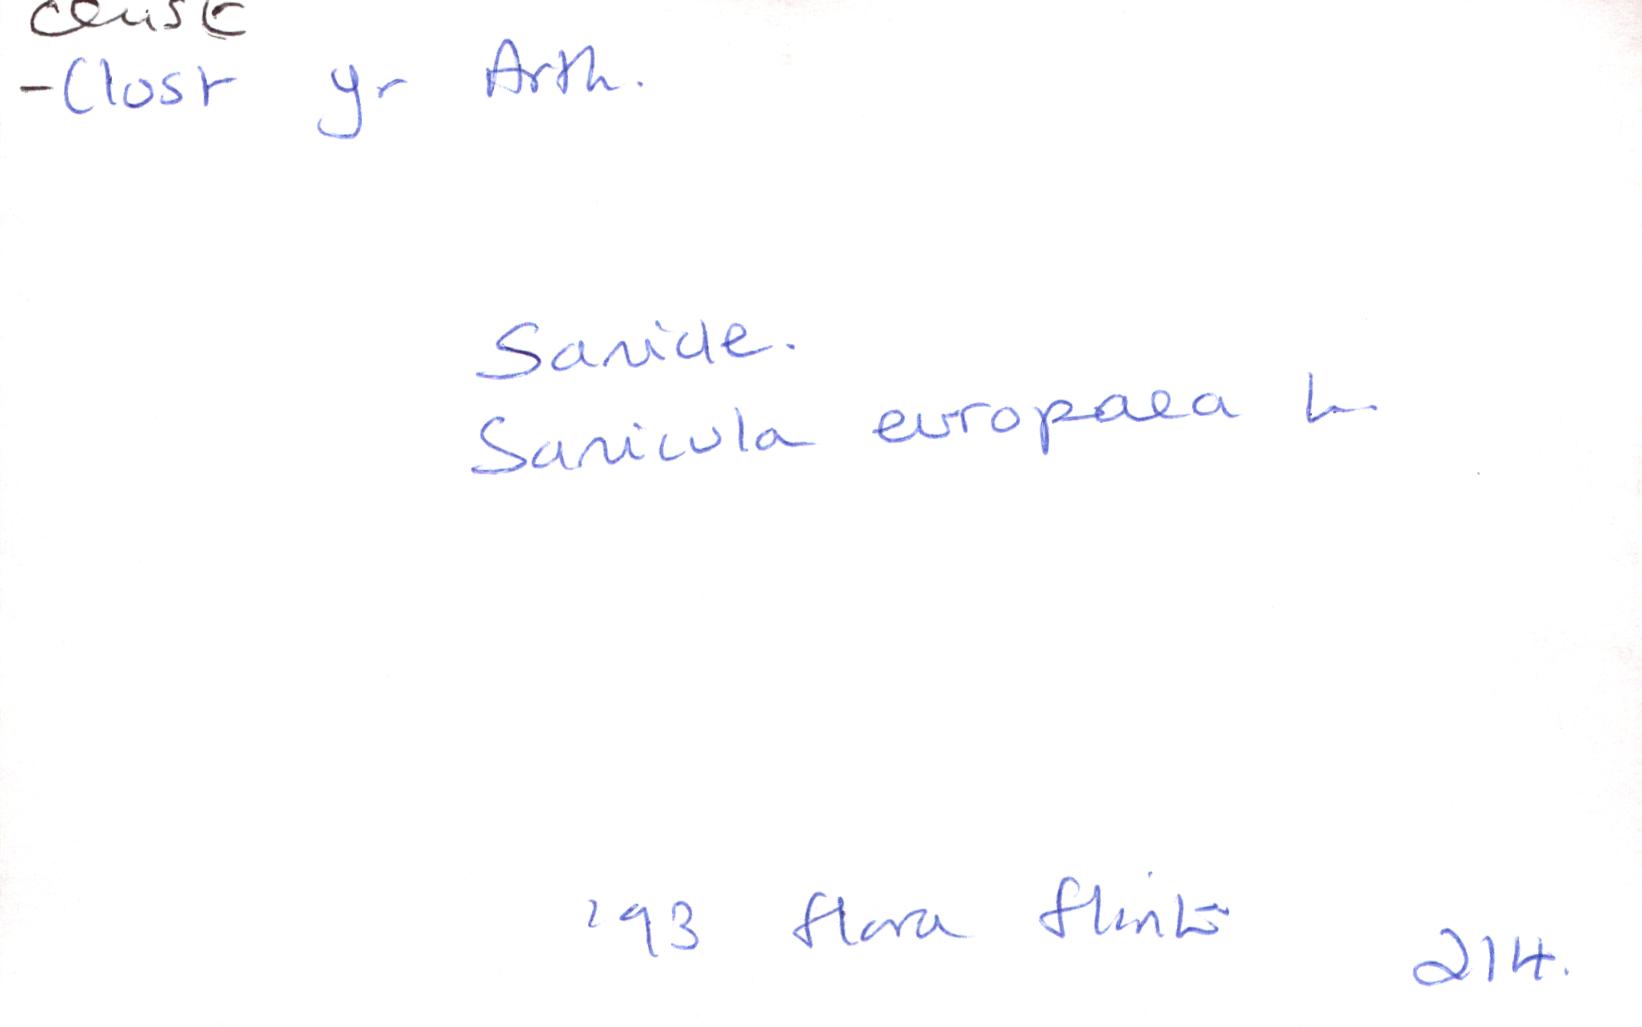 clust
-Clost yr Arth.
Sanicle.
Sanicula europaea L.
'93 flora flints
214.